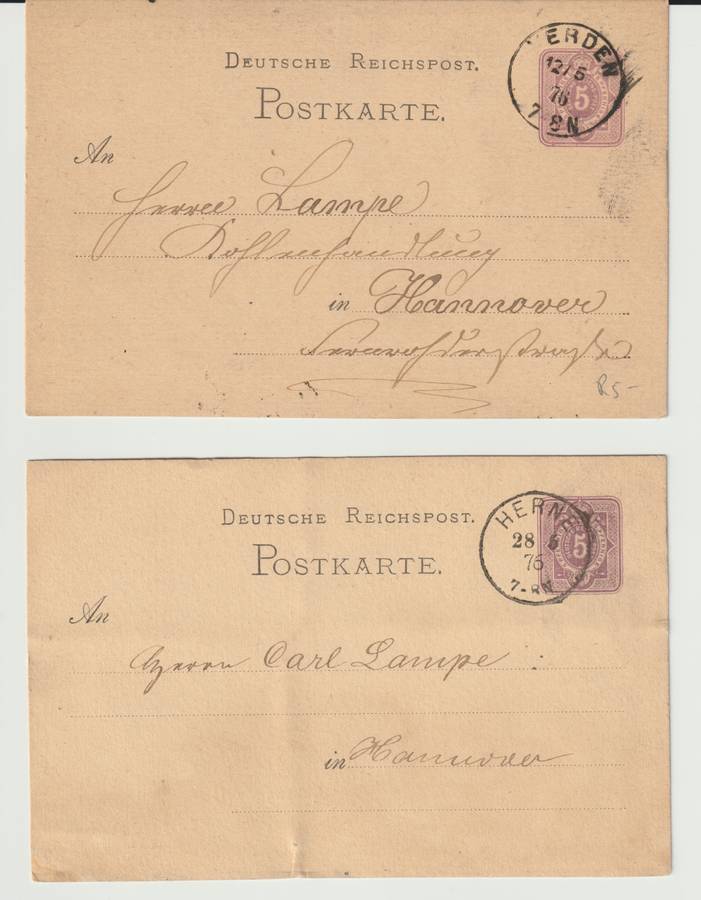 DEUTSCHE REICHSPOST.
POSTKARTE.
VERDEN
12/5
76
7-8N
5
An
Herrn Lampe
Kohlenhandlung
in Hannover
R5-
DEUTSCHE REICHSPOST.
POSTKARTE.
HERNE
28 5
76
7-8N
5
An
Herrn Carl Lampe
in Hannover